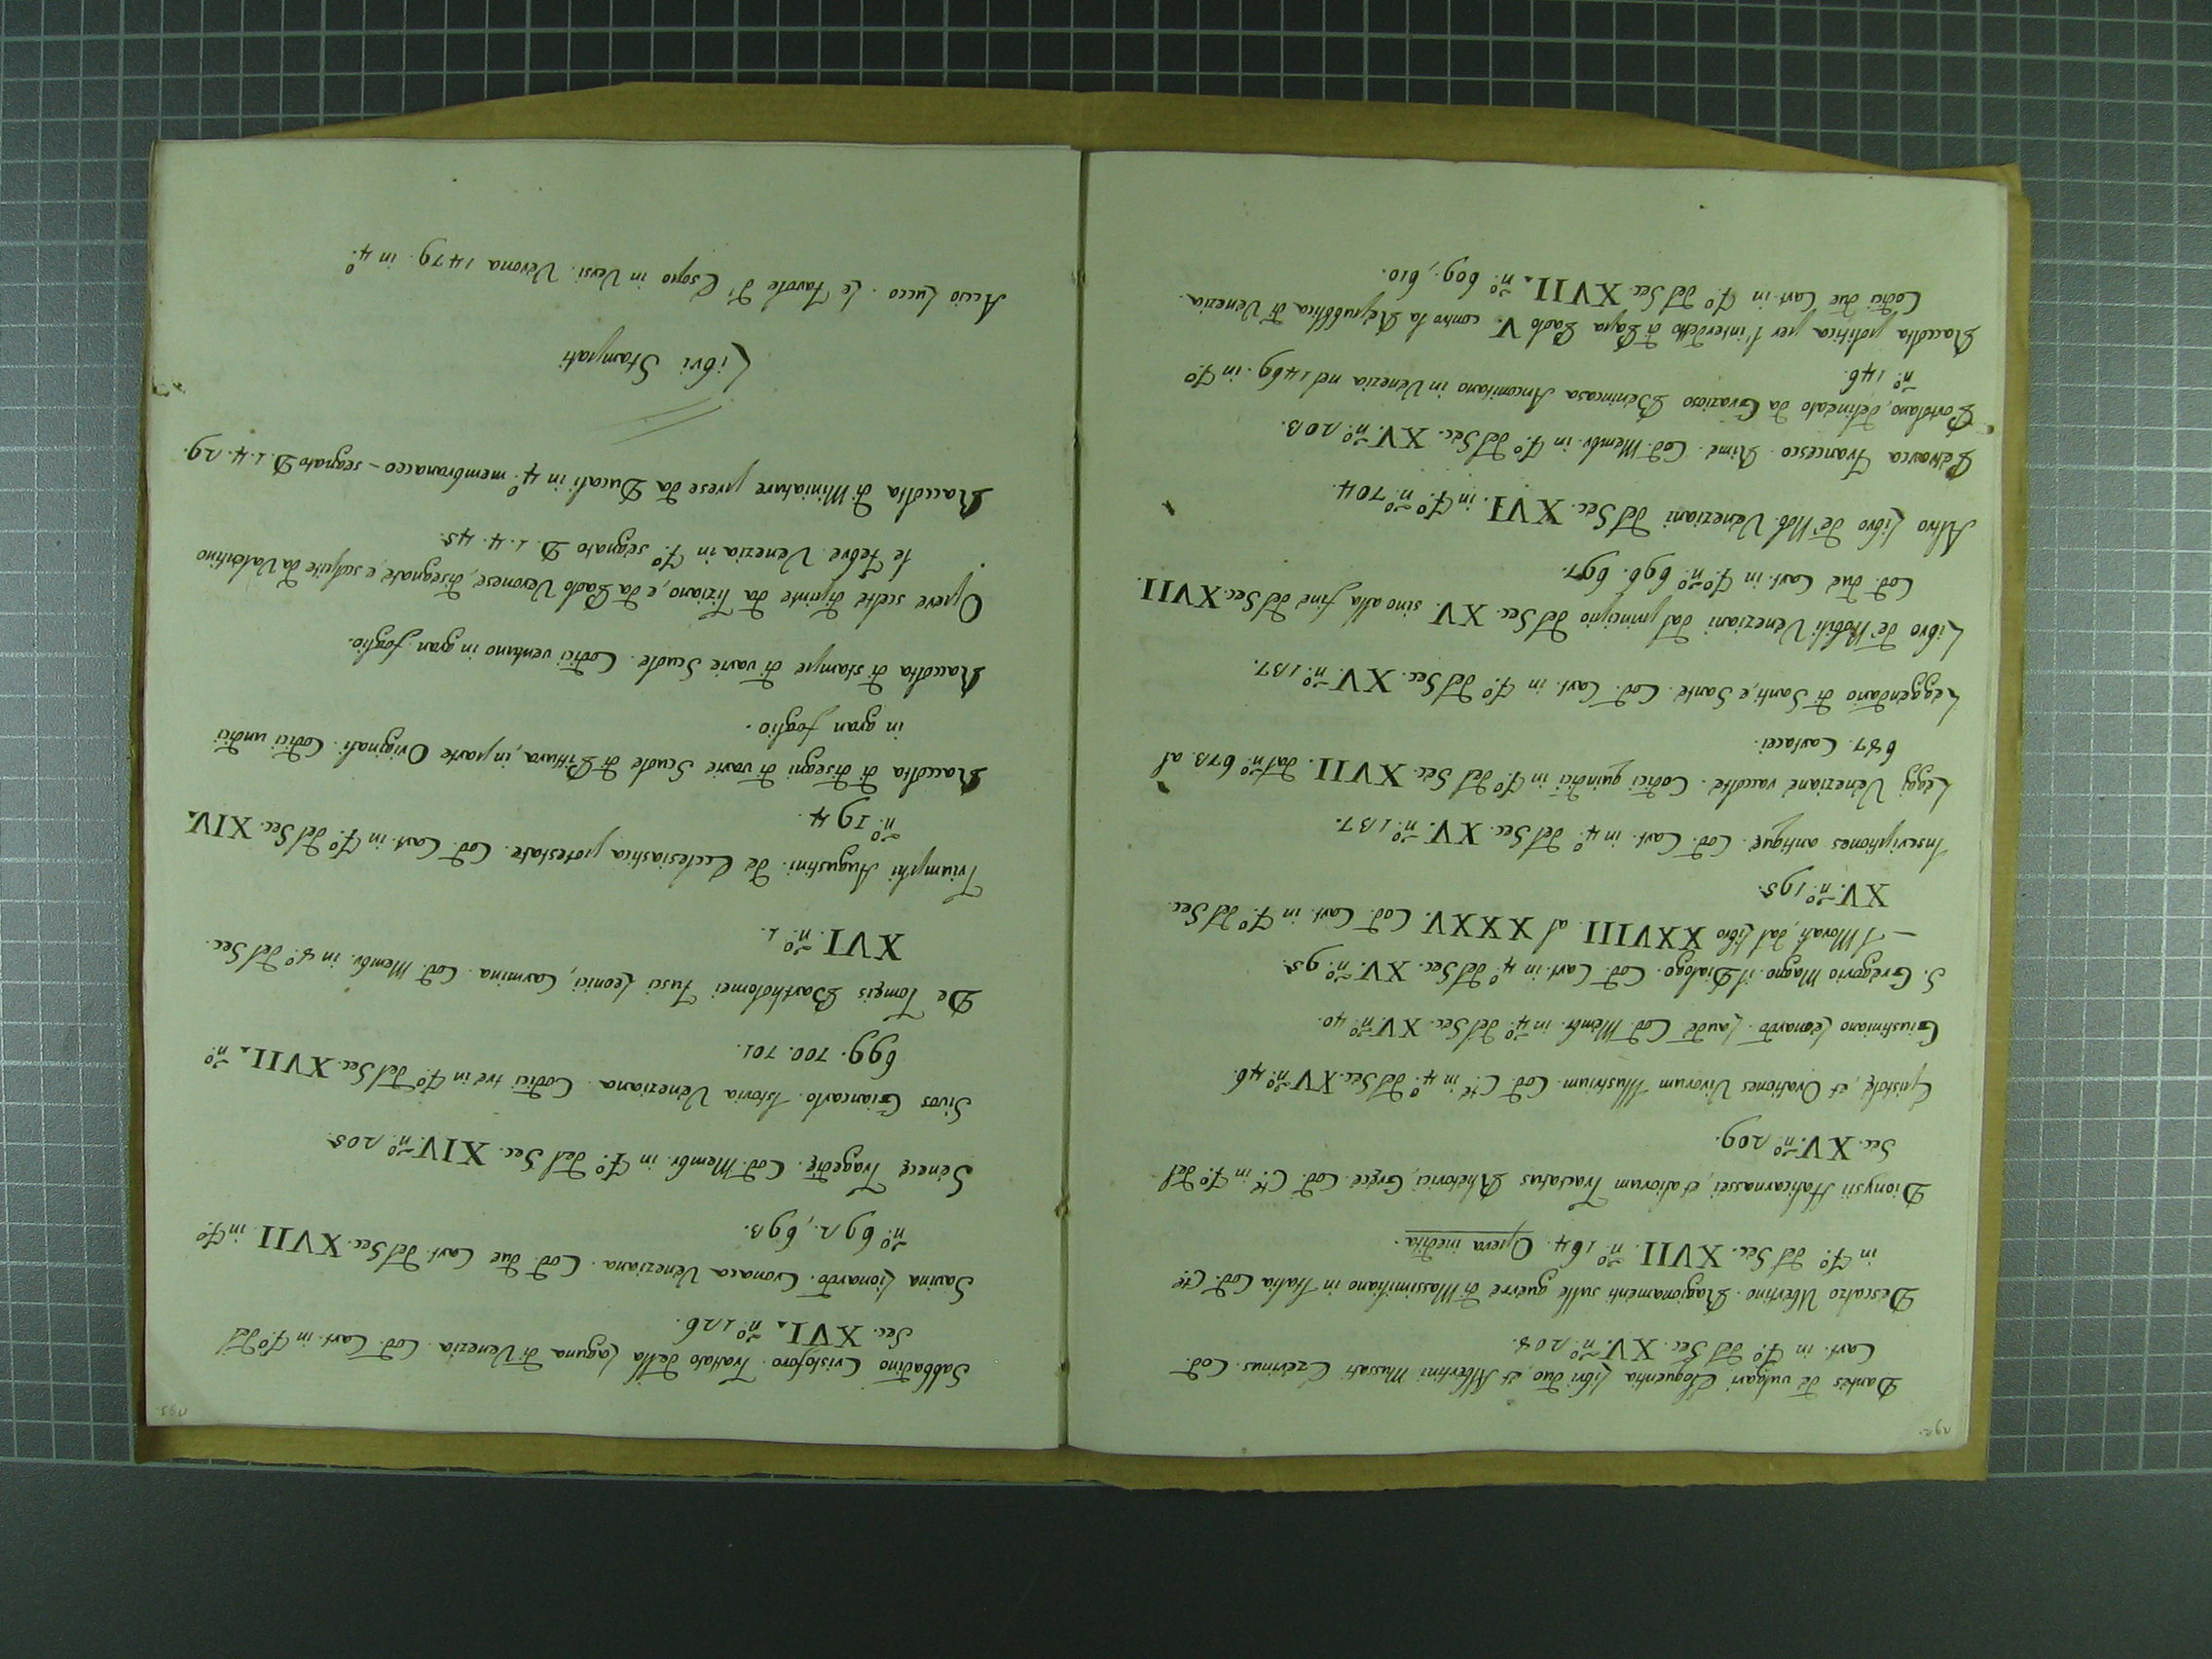 Dantes de vulgari Eloquentia Libri duo, et Albertini Mussati Ezerinus. Cod.
Cart. in F.º del Sec. XV. n.º 205.
Descalzo Ubertino. Ragionamenti sulle guerre di Massimiliano in Italia Cod. C.te
in F.º del Sec. XVII. n.º 164. Opera inedita.
Dionysii Halicarnassei et aliorum Tractatus Rhetorici, Gręce. Cod. C.te in F.º del
Sec. XV. n.º 209.
Epistolę, et Orationes Virorum Illustrium. Cod. C.te in 4.º del Sec. XV n.º 46.
Giustiniano Leonardo. Laude Cod. Membr. in 4.º del Sec. XV n.º 40.
S. Gregorio Magno. il Dialogo. Cod. Cart. in 4.º del Sec. XV. n.º 95.
— I Morali dal Libro XXVIII al XXXV. Cod. Cart. in F.º del Sec.
XV. n.º 195.
Inscriptiones antiquę. Cod. Cart. in 4.º del Sec. XV. n.º 137.
Leggi Veneziane raccolte. Codici quindici in F.º del Sec. XVII. dal n.º 673. al
687. Cartacei.
Leggendario di Santi, e Sante. Cod. Cart. in F.º del Sec. XV. n.º 137.
Libro de' Nobili Veneziani dal principio del Sec. XV. sino alla fine del Sec. XVII.
Cod. due Cart. in F.º n.º 696. 697.
Altro Libro de' Nob. Veneziani del Sec. XVI. in F.º n.º 704.
Petrarca Francesco. Rime. Cod. Membr. in F.º del Sec. XV. n.º 203.
Portolano, delineato da Grazioso Benincasa Anconitano in Venezia nel 1469. in F.º
n.º 146.
Raccolta politica per l'interdetto di Papa Paolo V. contro la Repubblica di Venezia.
Codici due Cart. in F.º del Sec. XVII. n.º 609, 610.
Sabbadino Cristoforo. Trattato della Laguna di Venezia. Cod. Cart. in F.º del
Sec. XVI. n.º 126.
Savina Lionardo. Cronaca Veneziana. Cod. due Cart. del Sec. XVII in F.º
n.º 692., 693.
Senecę Tragedię. Cod. Membr. in F.º del Sec. XIV. n.º 205.
Sivos Giancarlo. Istoria Veneziana. Codici tre in F.º del Sec. XVII. n.º
699. 700. 701.
De Tomęis Bartholomei Fusci Leonici, Carmina. Cod. Membr. in 8.º del Sec.
XVI. n.º 1.
Triumphi Augustini. de Ecclesiastica potestate. Cod. Cart. in F.º del Sec. XIV.
n.º 194.
Raccolta di disegni di varie Scuole di Pittura, in parte Originali. Codici undici
in gran foglio.
Raccolta di stampe di varie Scuole. Codici ventuno in gran foglio.
Opere scelte dipinte da Tiziano, e da Paolo Veronese, disegnate, e scolpite da Valentino
le Febre. Venezia in F.º segnato D. 1. 4. 45.
Raccolta di Miniature prese da Ducali in 4.º membranacco – segnato D. 1. 4. 29.
Libri Stampati
Accio Zucco. Le Favole d'Esopo in Versi. Verona 1479. in 4.º